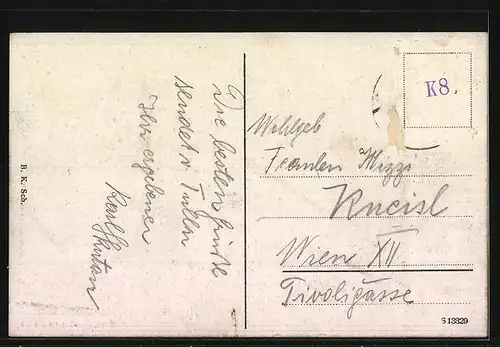 Die besten Grüße
sendet v. Tulln
Ihr ergebener
Karl
B. K. Sch.
K8.
Wohlgeb
Fraulen Mizzi
Kneisl
Wien XII
Tivoligasse
S 13329